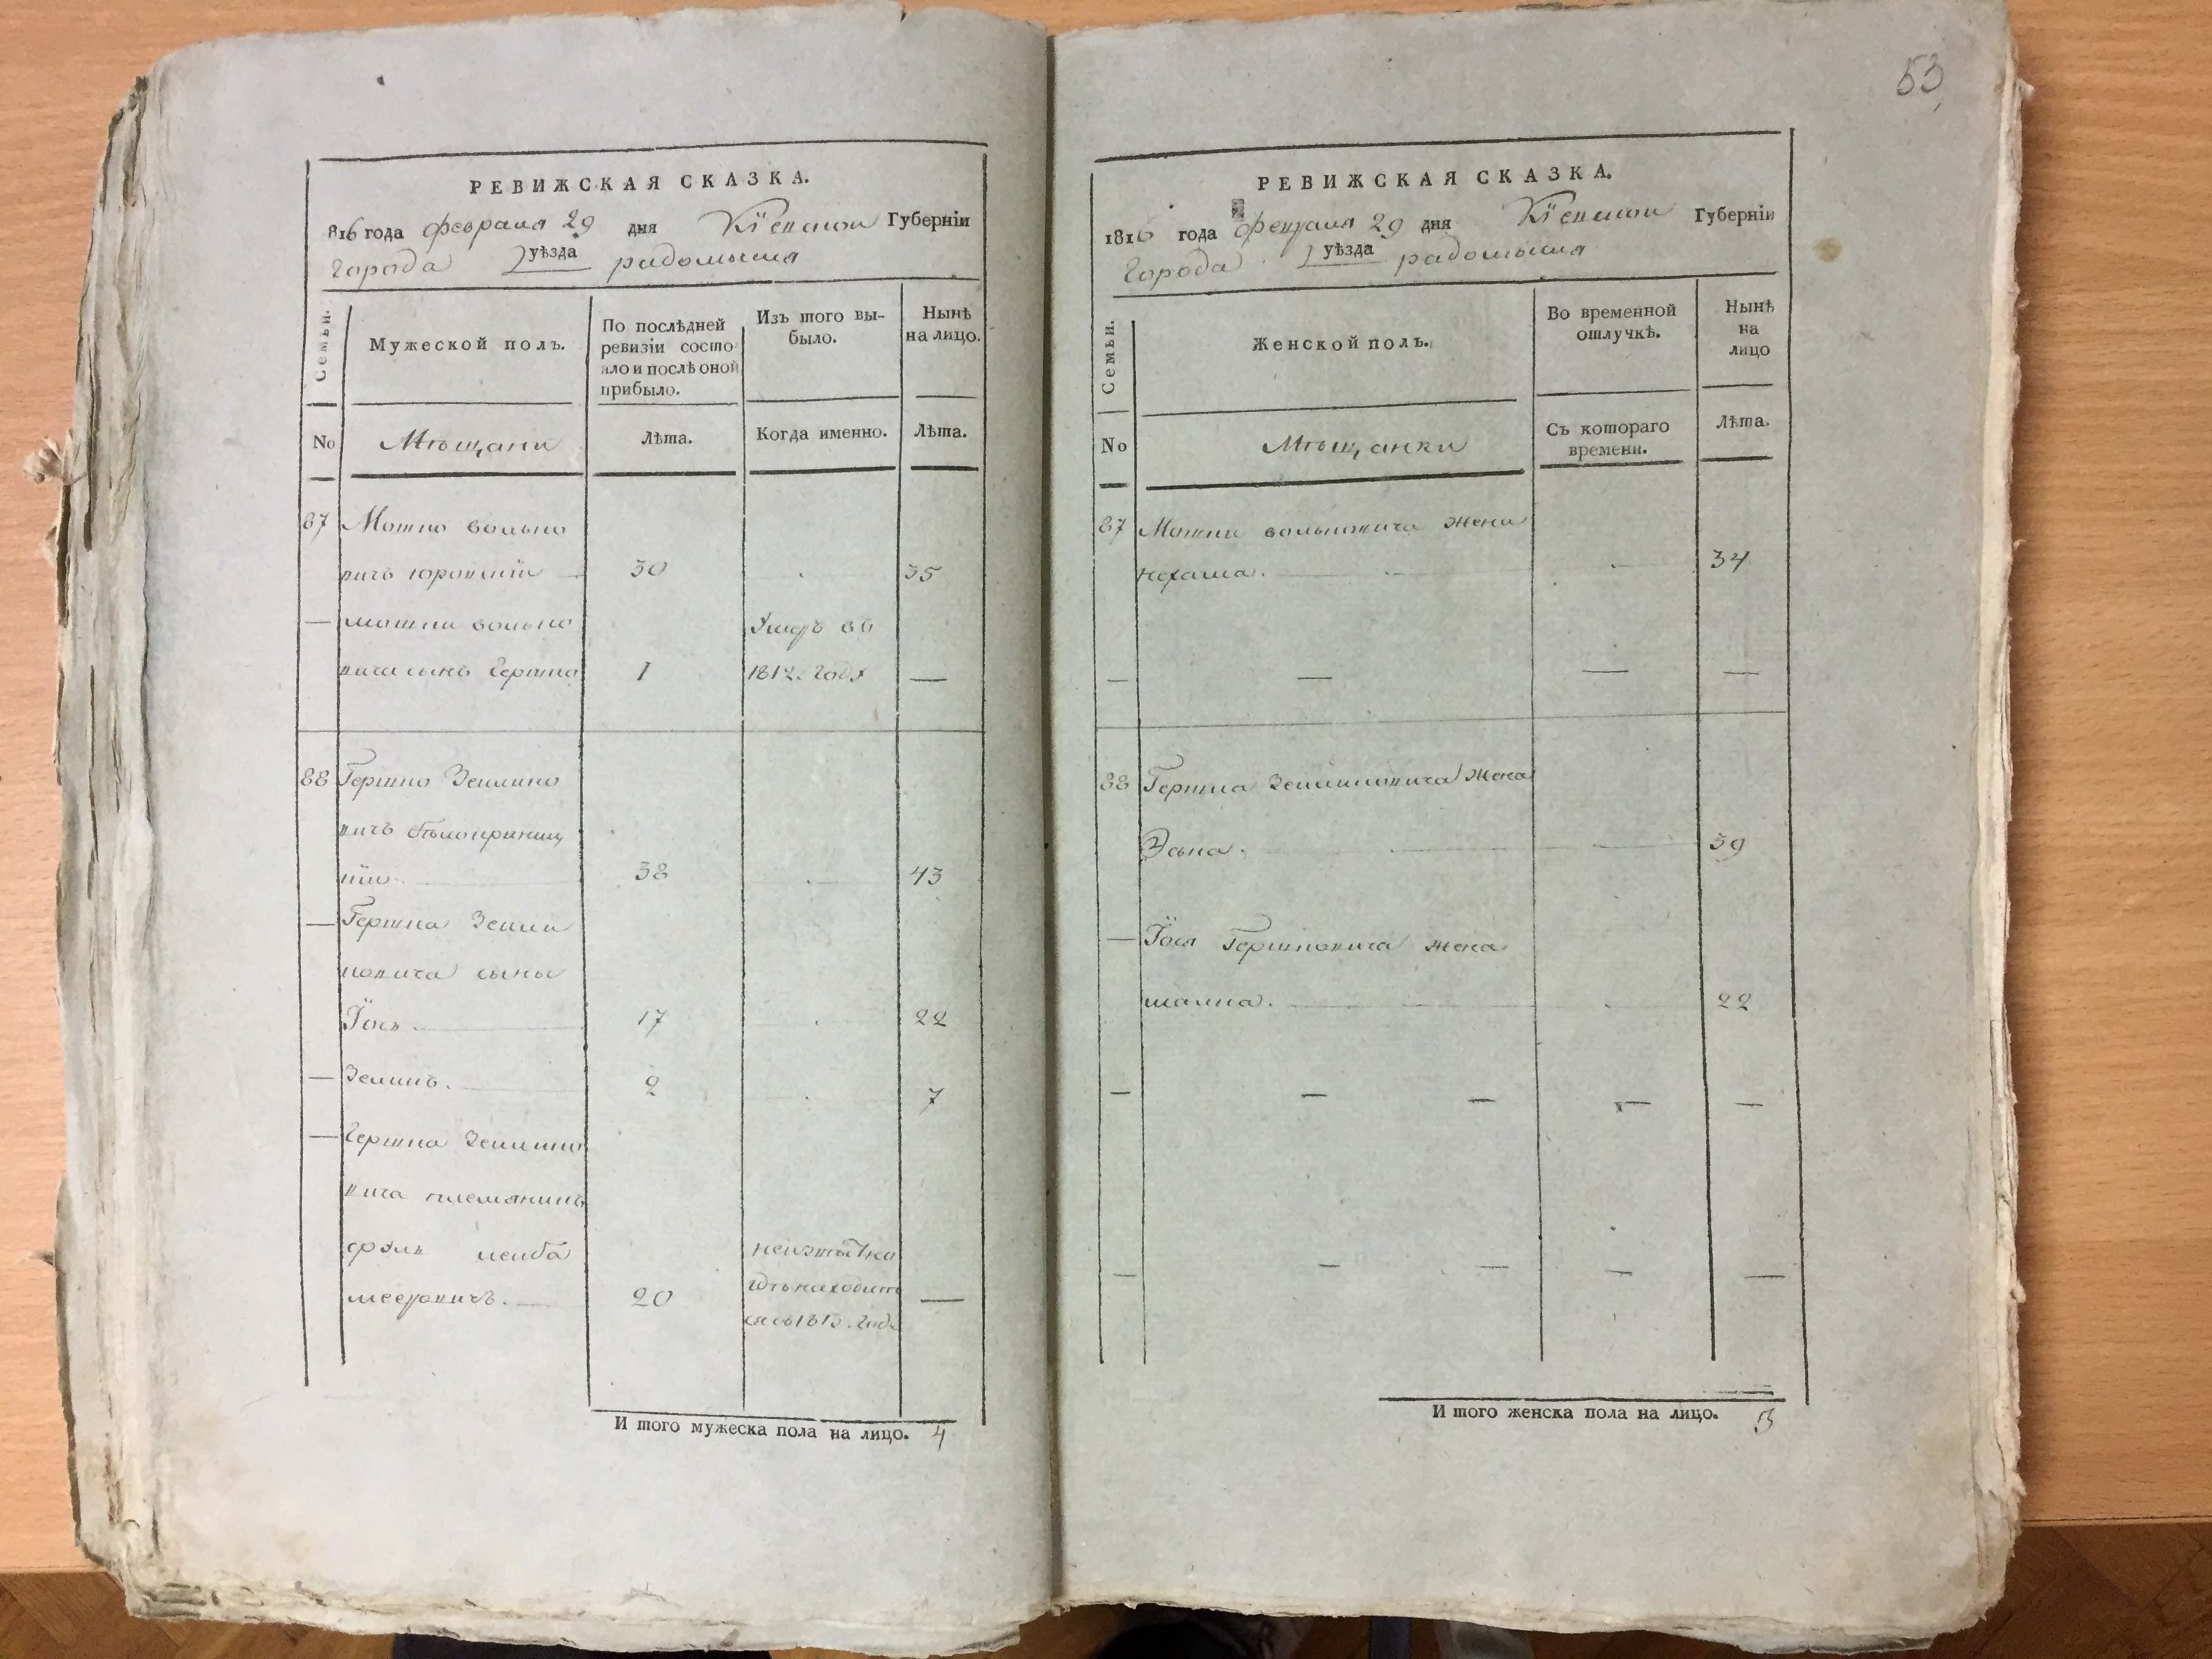 53
РЕВИЖСКАЯ СКАЗКА.
816 года февраля 29 дня Кіевской Губерніи
города уѣзда радомысля
Семьи.
Мужеской полъ.
По послѣдней
ревизіи состо
яло и послѣ оной
прибыло.
Изъ того вы-
было.
Нынѣ
на лицо.
No
Мѣщани
Лѣта.
Когда именно.
Лѣта.
87 Мошко волько
вичъ 30 35
— мошки волько
вича сынъ Гершко 1 1812. году —
88 Гершко Зелико
вичъ
38 43
— Гершка Зели
ковича сыны
Їось. 17 22
— Зеликъ. 2 7
— Гершка Зелико
вича племяникъ
сруль лейба неизвѣстно
мееровичъ. 20 гдѣ находит —
ся съ 1815. году
И того мужеска пола на лицо. 4
РЕВИЖСКАЯ СКАЗКА.
1816 года февраля 29 дня Кіевской Губерніи
Города уѣзда радомысля
Семьи.
Женской полъ.
Во временной
отлучкѣ.
Нынѣ
на
лицо
No
Мѣщанки
Съ котораго
времени.
Лѣта.
87 Мошки вольковича жена
нехама. 34
— — — —
88 Гершка Зеликовича жена
39
— Їося Гершковича жена
22
— — — — —
— — — — —
И того женска пола на лицо. 3